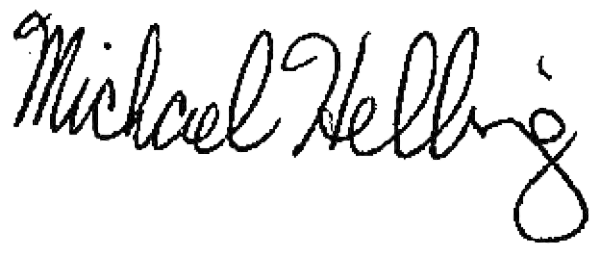 Michael Helling